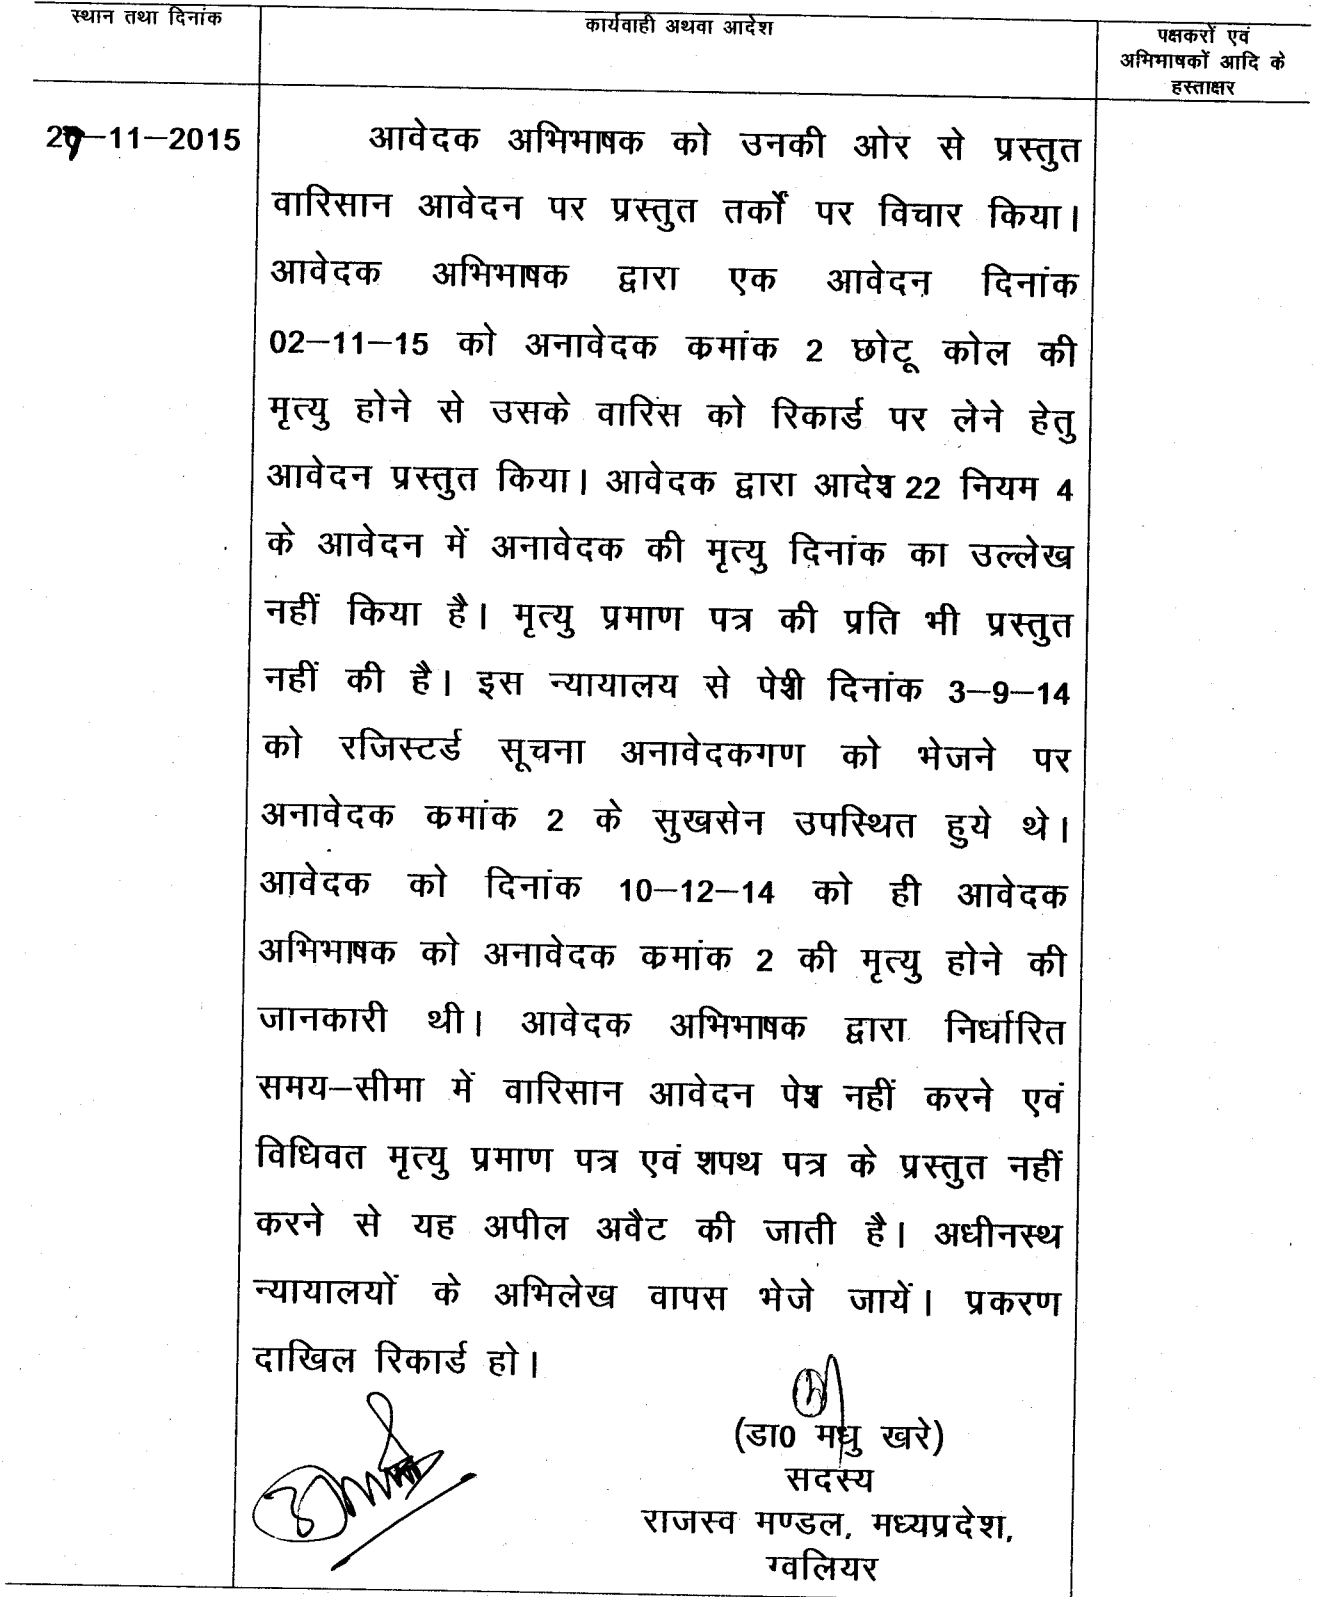 स्थान तथा दिनांक
कार्यवाही अथवा आदेश
पक्षकरों एवं
अभिभाषकों आदि के
हस्ताक्षर
-11-2015
आवेदक अभिभाषक को उनकी ओर से प्रस्तुत
वारिसान आवेदन पर प्रस्तुत तर्कों पर विचार किया।
आवेदक अभिभाषक द्वारा एक आवेदन दिनांक
02-11-15 को अनावेदक कमांक 2 छोटू कोल की
मृत्यु होने से उसके वारिस को रिकार्ड पर लेने हेतु
आवेदन प्रस्तुत किया। आवेदक द्वारा आदेश 22 नियम 4
के आवेदन में अनावेदक की मृत्यु दिनांक का उल्लेख
नहीं किया है। मृत्यु प्रमाण पत्र की प्रति भी प्रस्तुत
नहीं की है। इस न्यायालय से पेशी दिनांक 3-9-14
को रजिस्टर्ड सूचना अनावेदकगण को भेजने पर
अनावेदक कमांक 2 के सुखसेन उपस्थित हुये थे।
आवेदक को दिनांक 10-12-14 को ही आवेदक
अभिभाषक को अनावेदक कमांक 2 की मृत्यु होने की
जानकारी थी। आवेदक अभिभाषक द्वारा निर्धारित
समय-सीमा में वारिसान आवेदन पेश नहीं करने एवं
विधिवत मृत्यु प्रमाण पत्र एवं शपथ पत्र के प्रस्तुत नहीं
करने से यह अपील अवैट की जाती है। अधीनस्थ
न्यायालयों के अभिलेख वापस भेजे जायें। प्रकरण
दाखिल रिकार्ड हो।
(डा0 मधु खरे)
सदस्य
राजस्व मण्डल, मध्यप्रदेश,
ग्वलियर